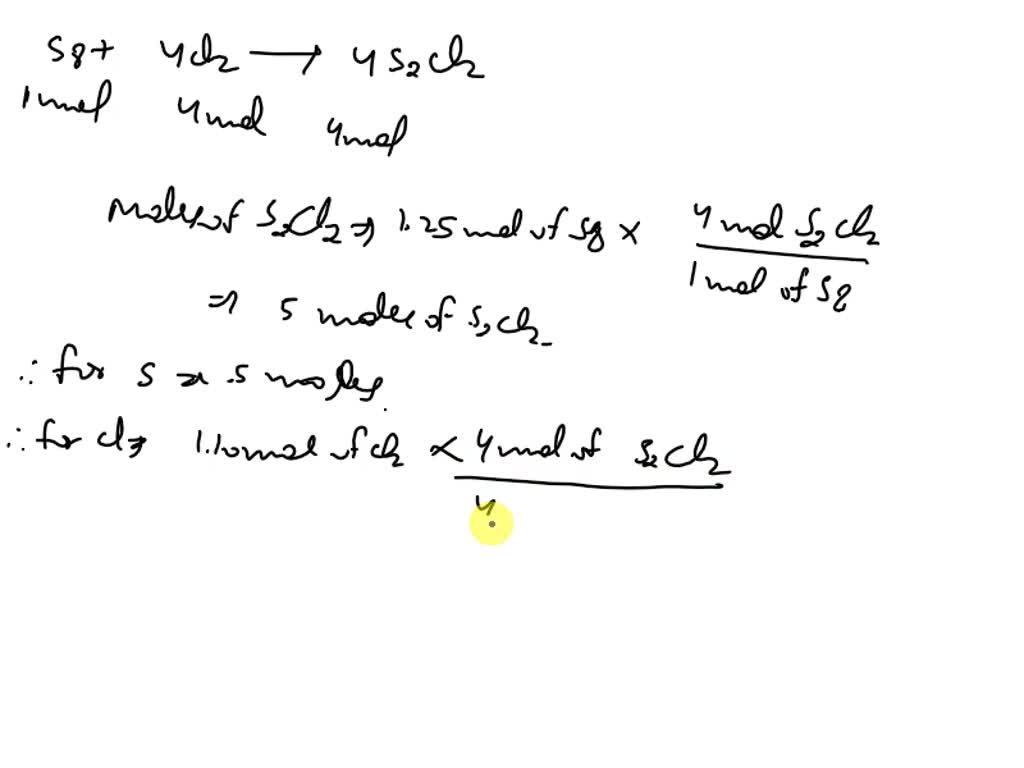 S8 + 4Cl2 → 4S2Cl2
1 mol 4 mol 4 mol
moles of S2Cl2 ⇒ 1.25 mol of S8 × 4 mol S2Cl2 / 1 mol of S8
⇒ 5 moles of S2Cl2
∴ for S ⇒ 5 moles.
∴ for Cl ⇒ 1.10 mol of Cl2 × 4 mol of S2Cl2
4